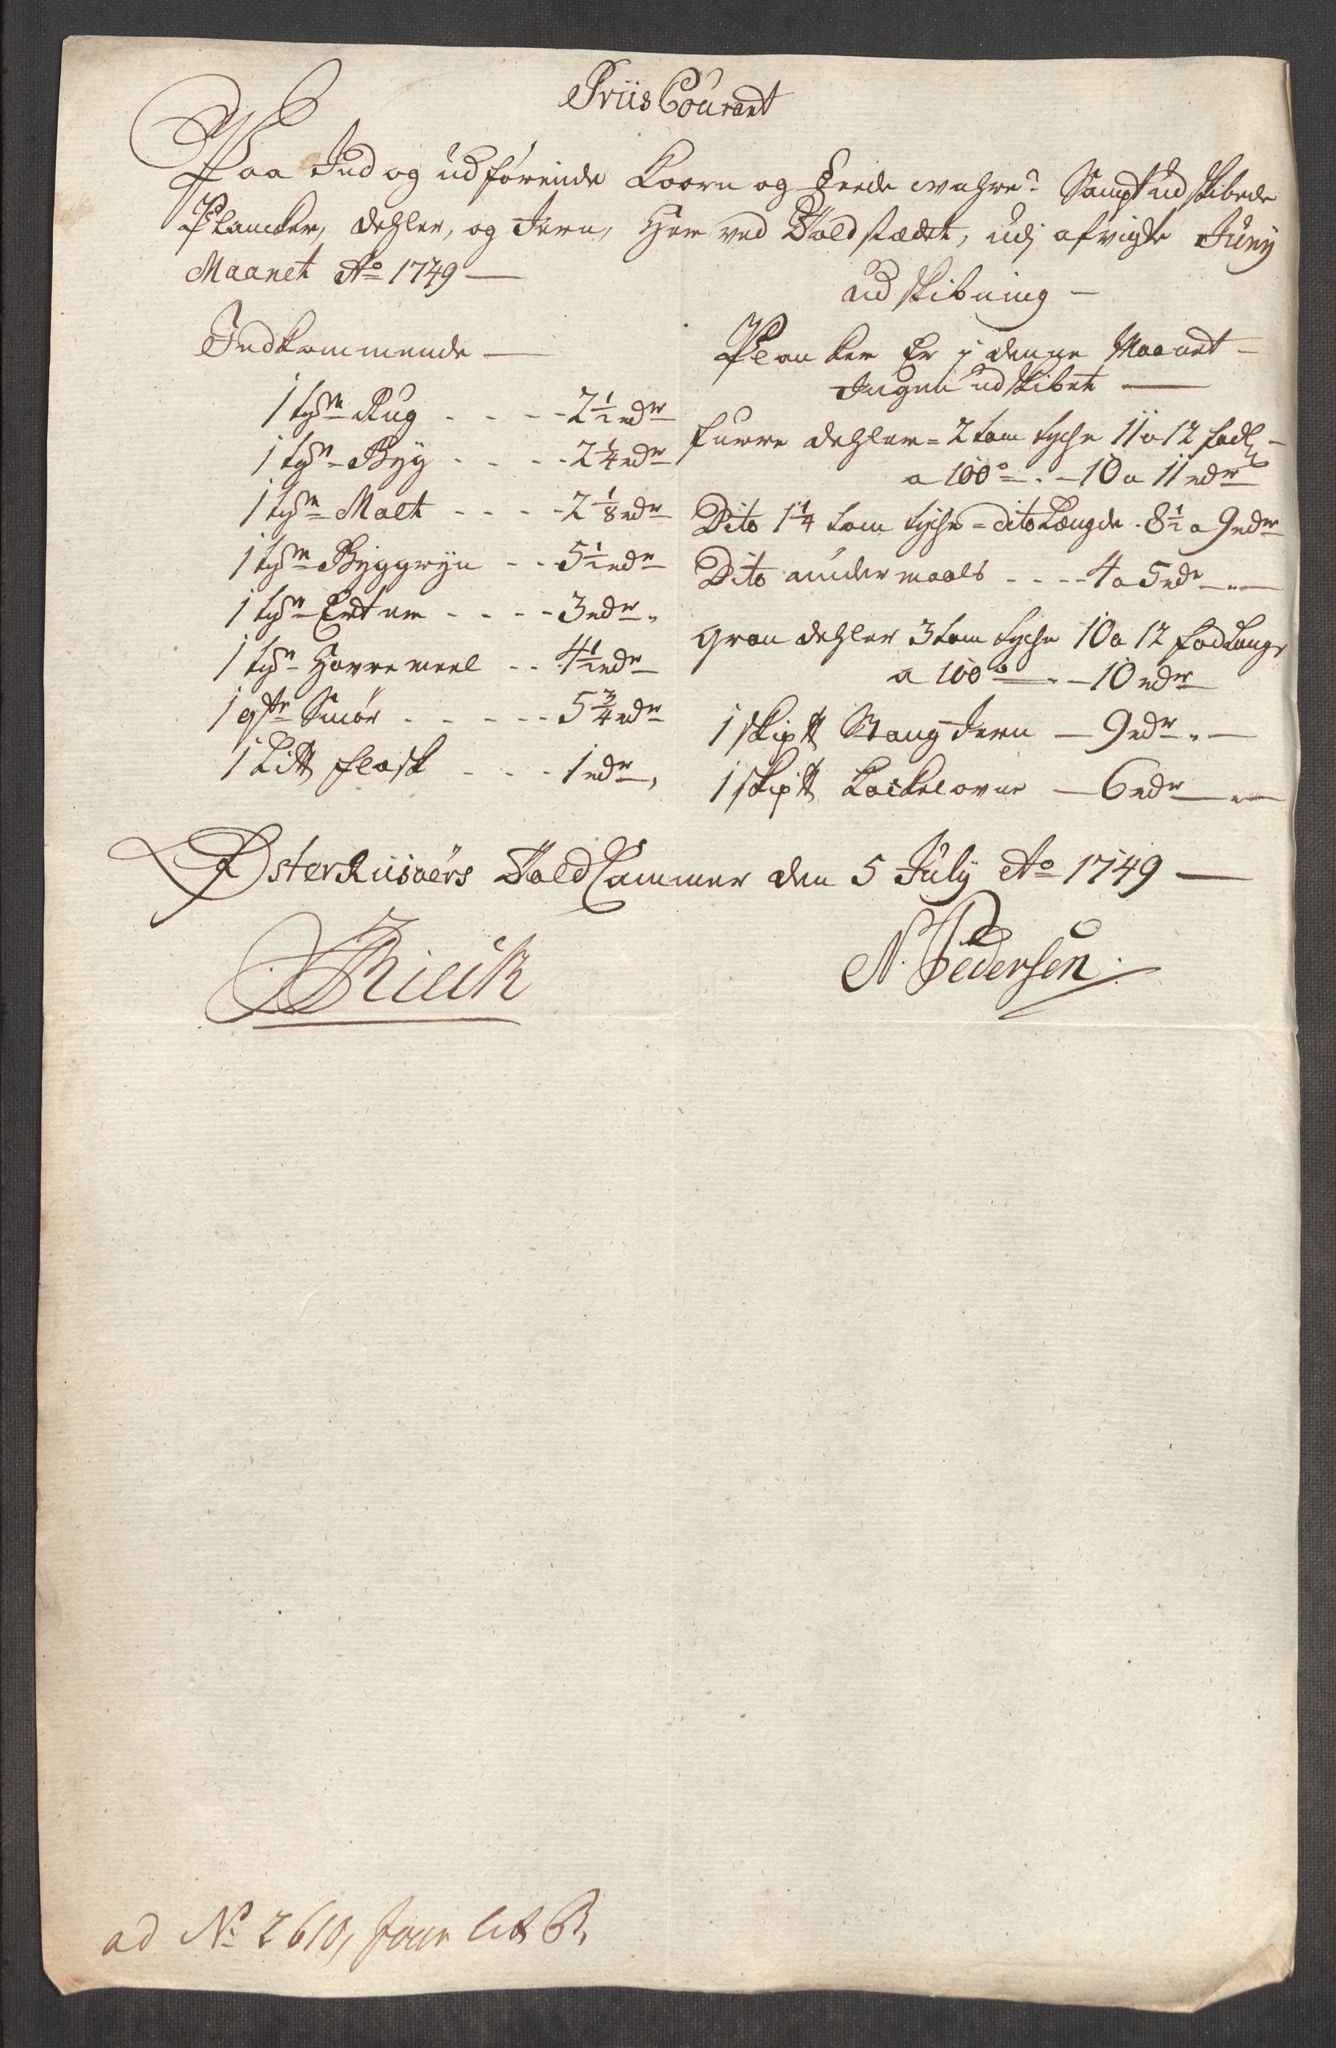 Priis Courant
Paa Ind og udförende Koorn og Feede wahre Sampt udskibede
Plancker, dehler, og Jern, Her ved Toldstædet, udj afvigte Juny
Maanet Ao 1749 —
Indkommende —
1 tdr Rug - - - - 2 1/2 rdr
1 tdr Byg - - - - 2 1/4 rdr
1 tdr Malt - - - - 2 1/8 rdr
1 tdr Byggryn - - 5 1/2 rdr
1 tdr Erter - - - - 3 rdr
1 tdr Havremeel - - 4 1/2 rdr
1 qtr Smör - - - - - 5 3/4 rdr
1 Litt flesk - - - - 1 rdr,
udskibning —
Plancker Er i denne Maanet —
Ingen udskibet —
furre dehler = 2 tom tyche 11 a 12 fod
a 100 - - 10 a 11 rdr
Dito 1 1/4 tom tyche = dito Længde - 8 1/2 a 9 rdr
Dito undermaals - - - - 4 a 5 rdr —
gran dehler 3 tom tyche 10 a 12 fod lange
a 100 - - 10 rdr
1 skip tt Stang Jern — 9 rdr —
1 skip tt Kackelovne — 6 rdr —
ØsterRiisøers Told Cammer den 5 July Ao 1749 —
N. Pedersen
ad No 2610, Jour Lit B,